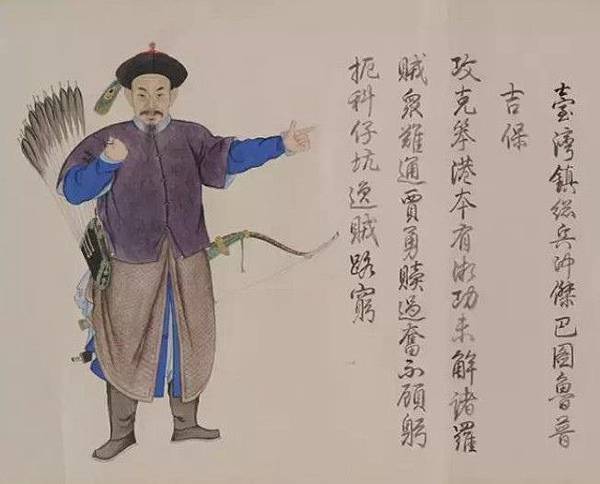 臺灣鎮總兵冲傑巴圖魯普
吉保
攻克笨港本有微功未解諸羅
賊衆難通賈勇贖過奮不顧躬
扼科仔坑逸賊路窮